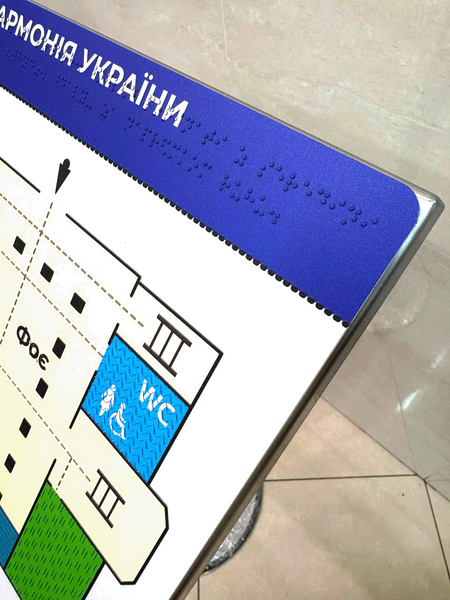 АРМОНІЯ УКРАЇНИ
Фоє
III
WC
III